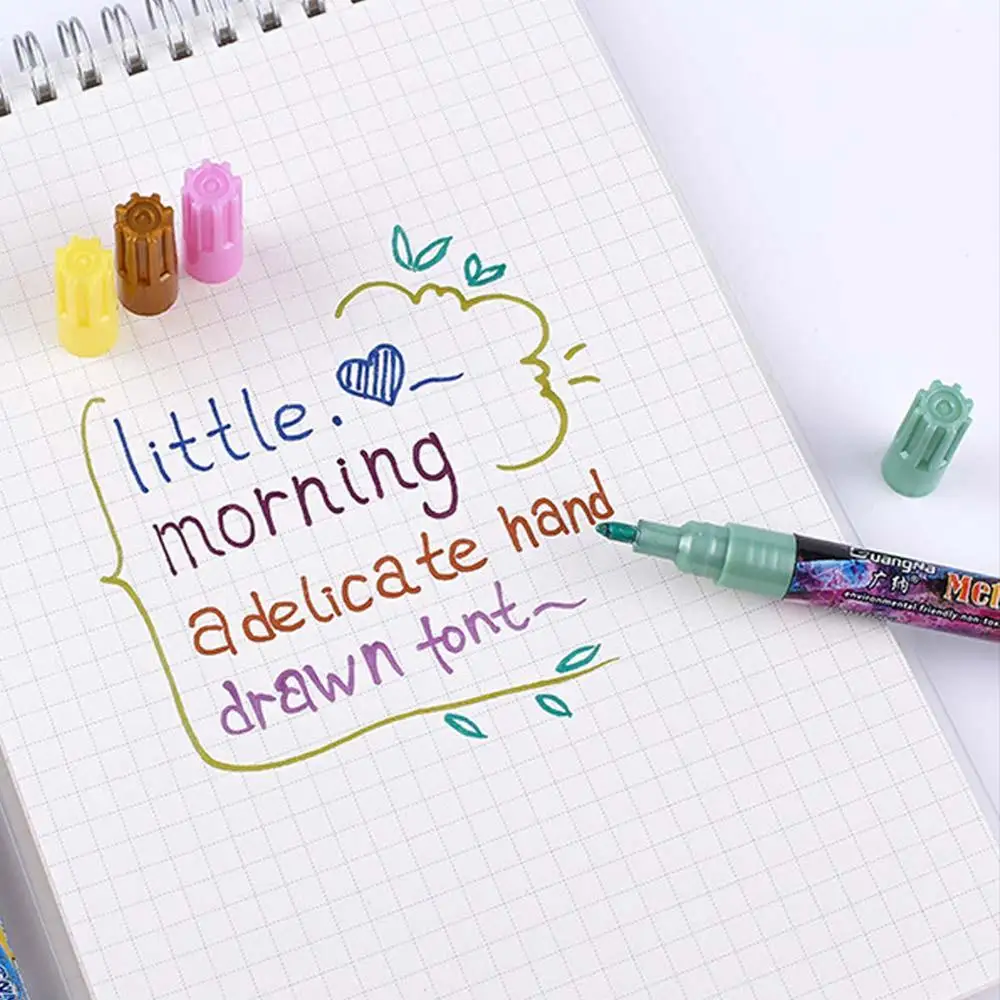 little.
morning
a delicate hand
drawn font~
GuangNa
广纳®
environmental friendly